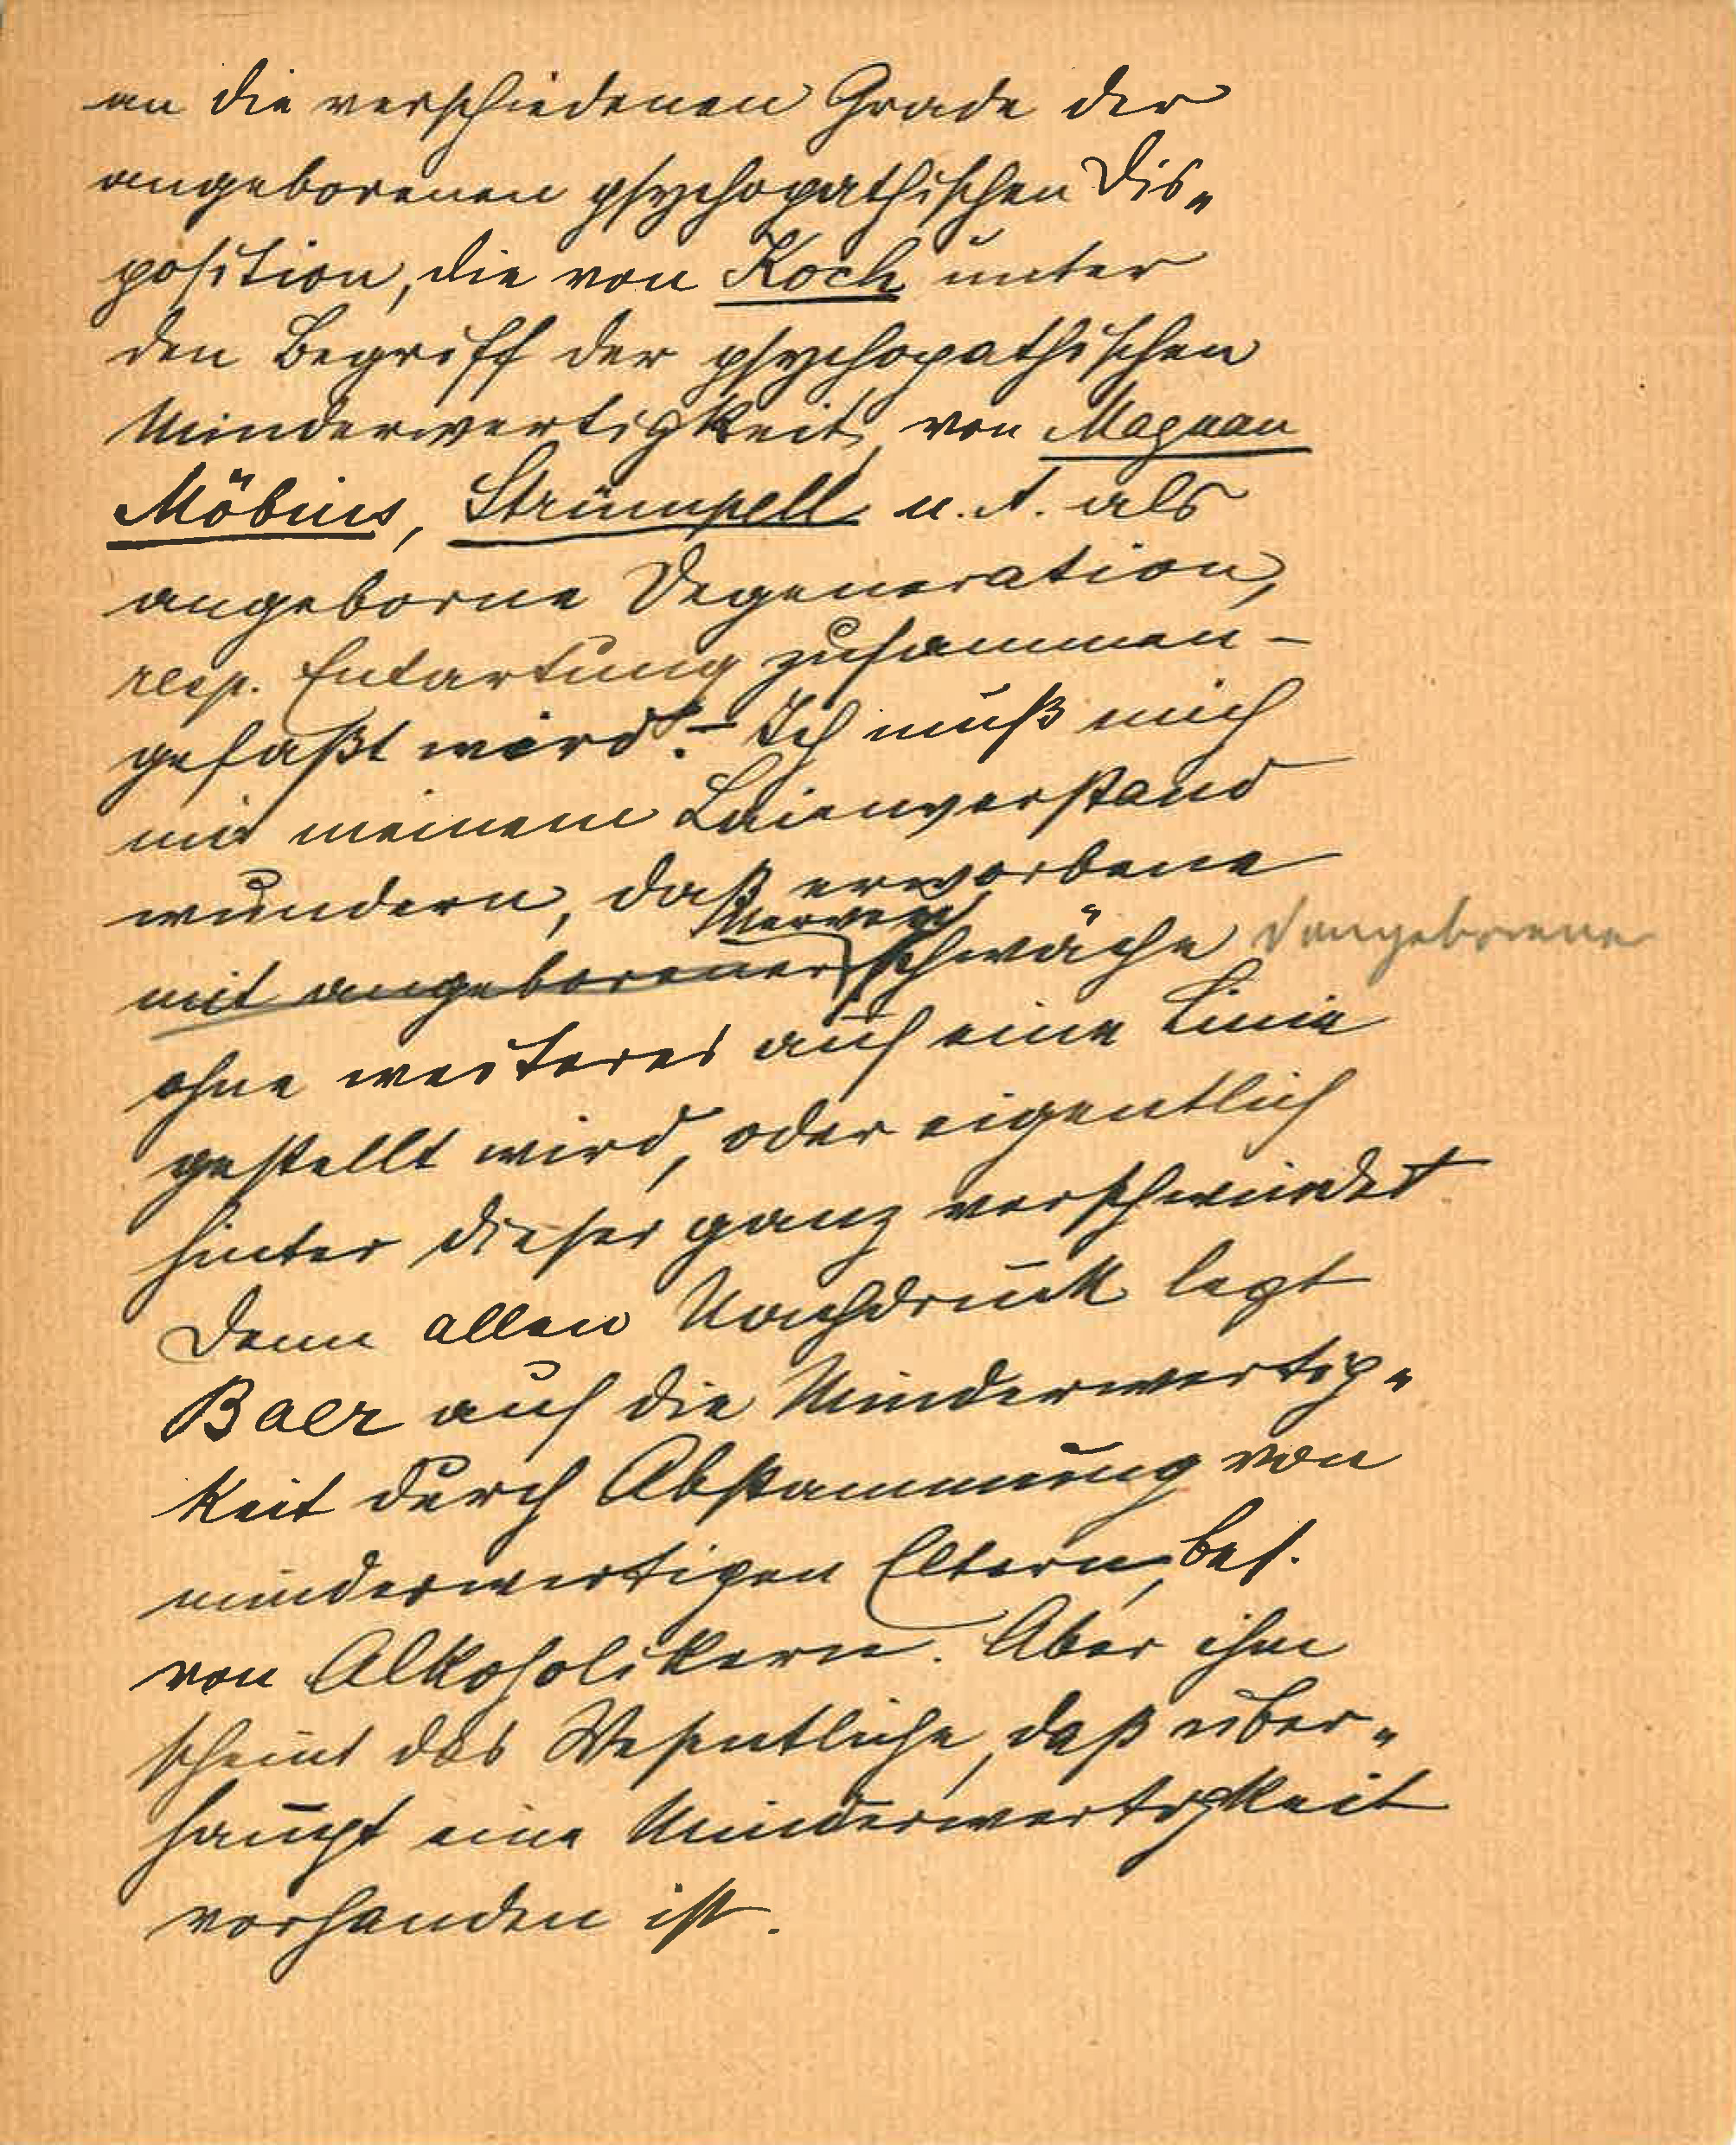 an die verschiedenen Grade der
angeborenen psychopathischen Dis„
position, die von Koch unter
den Begriff der psychopathischen
Minderwertigkeit, von Magnan
Möbius, Strümpell u. A. als
angeborne Degeneration,
resp. Entartung zusammen-
gefaßt wird". – Ich muß mich
mit meinem Laienverstand
wundern, daß erworbene
Nerven
mit angeborener schwäche angeborene
ohne weiteres auf eine Linie
gestellt wird, oder eigentlich
hinter dieser ganz verschwindet
Denn allen Nachdruck legt
Baer auf die Minderwertig„
keit durch Abstammung von
minderwertigen Eltern, bes.
von Alkoholikern. Aber ihm
scheint das Wesentliche, daß über„
haupt eine Minderwertigkeit
vorhanden ist.